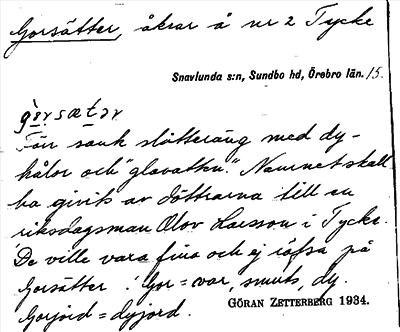 Gorsätter, åkrar å nr 2 Tycke
Snavlunda s:n, Sundbo hd, Örebro län. 15.
Förr sank slätteräng med dy-
hålor och "glovatten". Namnet skall
ha givits av döttrarna till en
riksdagsman Olov Larsson i Tycke.
De ville vara fina och ej räfsa på
Gorsätter! Gor = var, smuts, dy.
Gorjord = dyjord.
GÖRAN ZETTERBERG 1934.